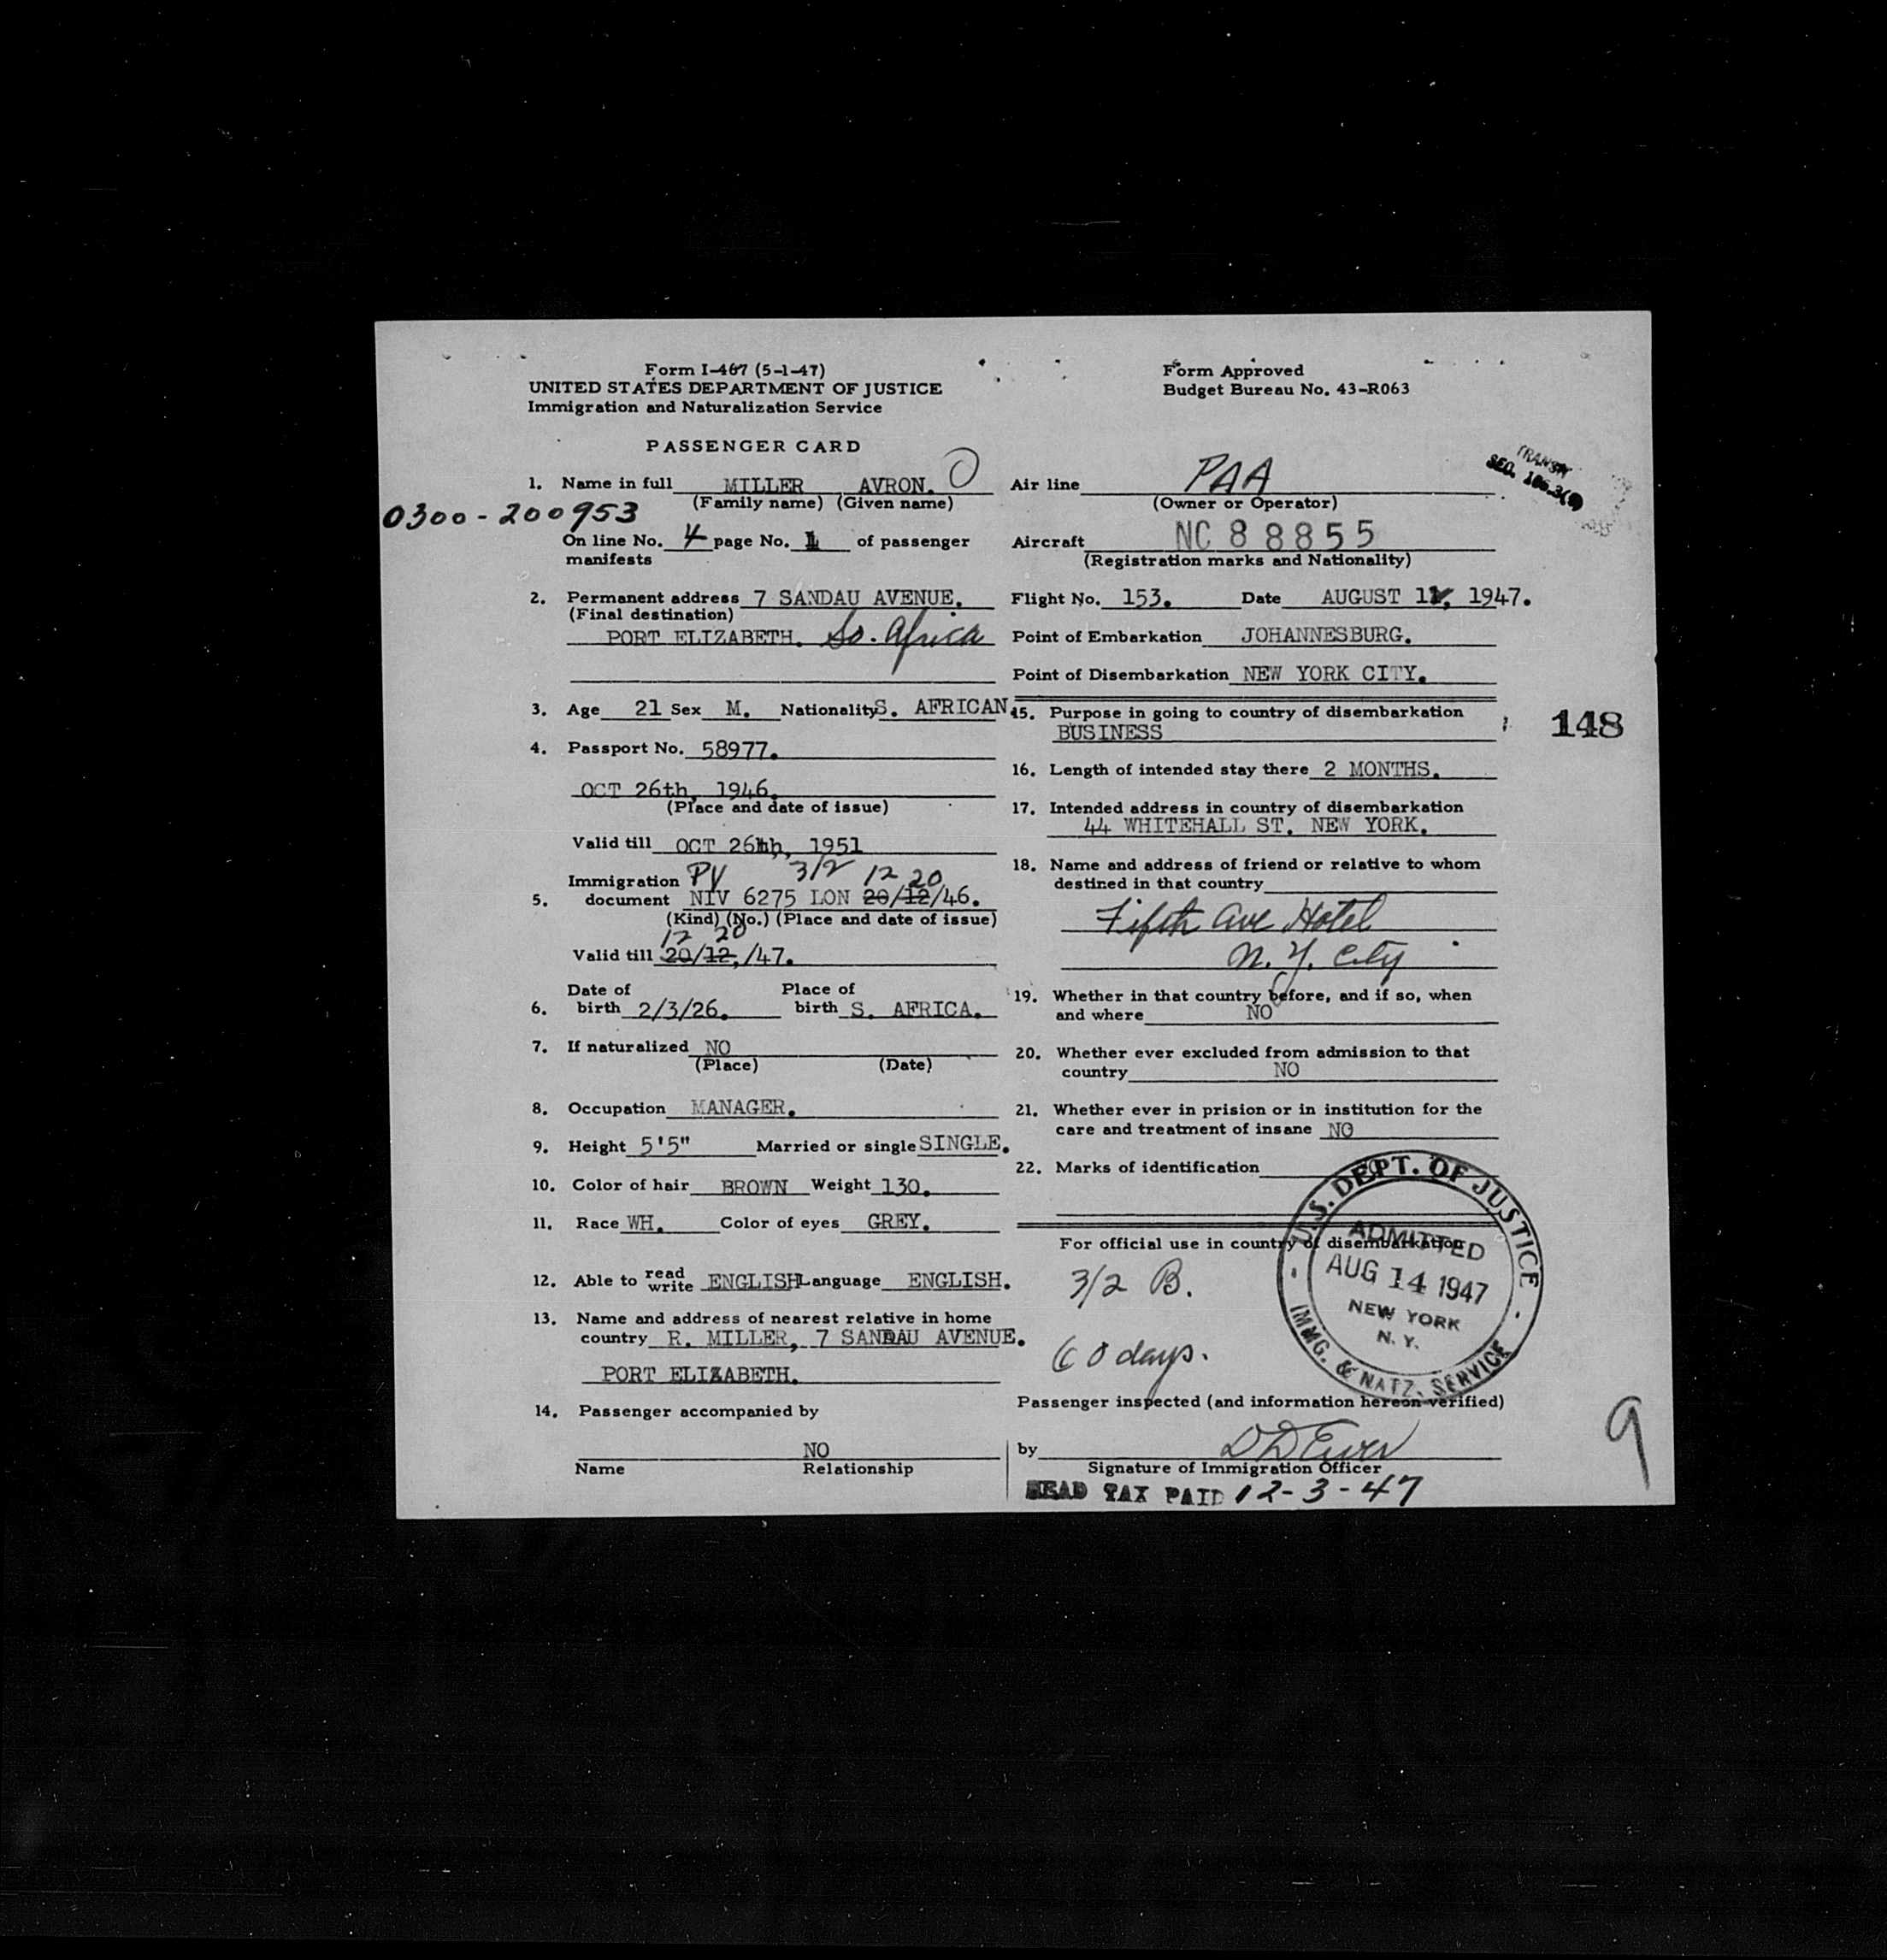 Form I-467 (5-1-47)
UNITED STATES DEPARTMENT OF JUSTICE
Immigration and Naturalization Service
Form Approved
Budget Bureau No. 43-R063
PASSENGER CARD
1. Name in full MILLER AVRON.
(Family name) (Given name)
0300-200953
On line No. 4 page No. 1 of passenger
manifests
2. Permanent address 7 SANDAU AVENUE.
(Final destination)
PORT ELIZABETH. So. Africa
3. Age 21 Sex M. Nationality S. AFRICAN.
4. Passport No. 58977.
OCT 26th, 1946.
(Place and date of issue)
Valid till OCT 26th, 1951
PV 3/2 12 20
Immigration
5. document NIV 6275 LON 20/12/46.
(Kind) (No.) (Place and date of issue)
12 20
Valid till 20/12,/47.
Date of Place of
6. birth 2/3/26. birth S. AFRICA.
7. If naturalized NO
(Place) (Date)
8. Occupation MANAGER.
9. Height 5'5" Married or single SINGLE.
10. Color of hair BROWN Weight 130.
11. Race WH. Color of eyes GREY.
12. Able to read write ENGLISH Language ENGLISH.
13. Name and address of nearest relative in home
country R. MILLER, 7 SANDAU AVENUE.
PORT ELIZABETH.
14. Passenger accompanied by
NO
Name Relationship
Air line PAA
(Owner or Operator)
TRANSIT
SEC.
Aircraft NC 88855
(Registration marks and Nationality)
Flight No. 153. Date AUGUST 1, 1947.
Point of Embarkation JOHANNESBURG.
Point of Disembarkation NEW YORK CITY.
15. Purpose in going to country of disembarkation
BUSINESS
148
16. Length of intended stay there 2 MONTHS.
17. Intended address in country of disembarkation
44 WHITEHALL ST. NEW YORK.
18. Name and address of friend or relative to whom
destined in that country
Fifth Ave Hotel
N. Y. City
19. Whether in that country before, and if so, when
and where NO
20. Whether ever excluded from admission to that
country NO
21. Whether ever in prision or in institution for the
care and treatment of insane NO
22. Marks of identification
For official use in country of disembarkation
3/2 B.
60 days.
U.S. DEPT. OF JUSTICE
ADMITTED
AUG 14 1947
NEW YORK
N. Y.
IMMG. & NATZ. SERVICE
Passenger inspected (and information hereon verified)
by
Signature of Immigration Officer
HEAD TAX PAID 12-3-47
9